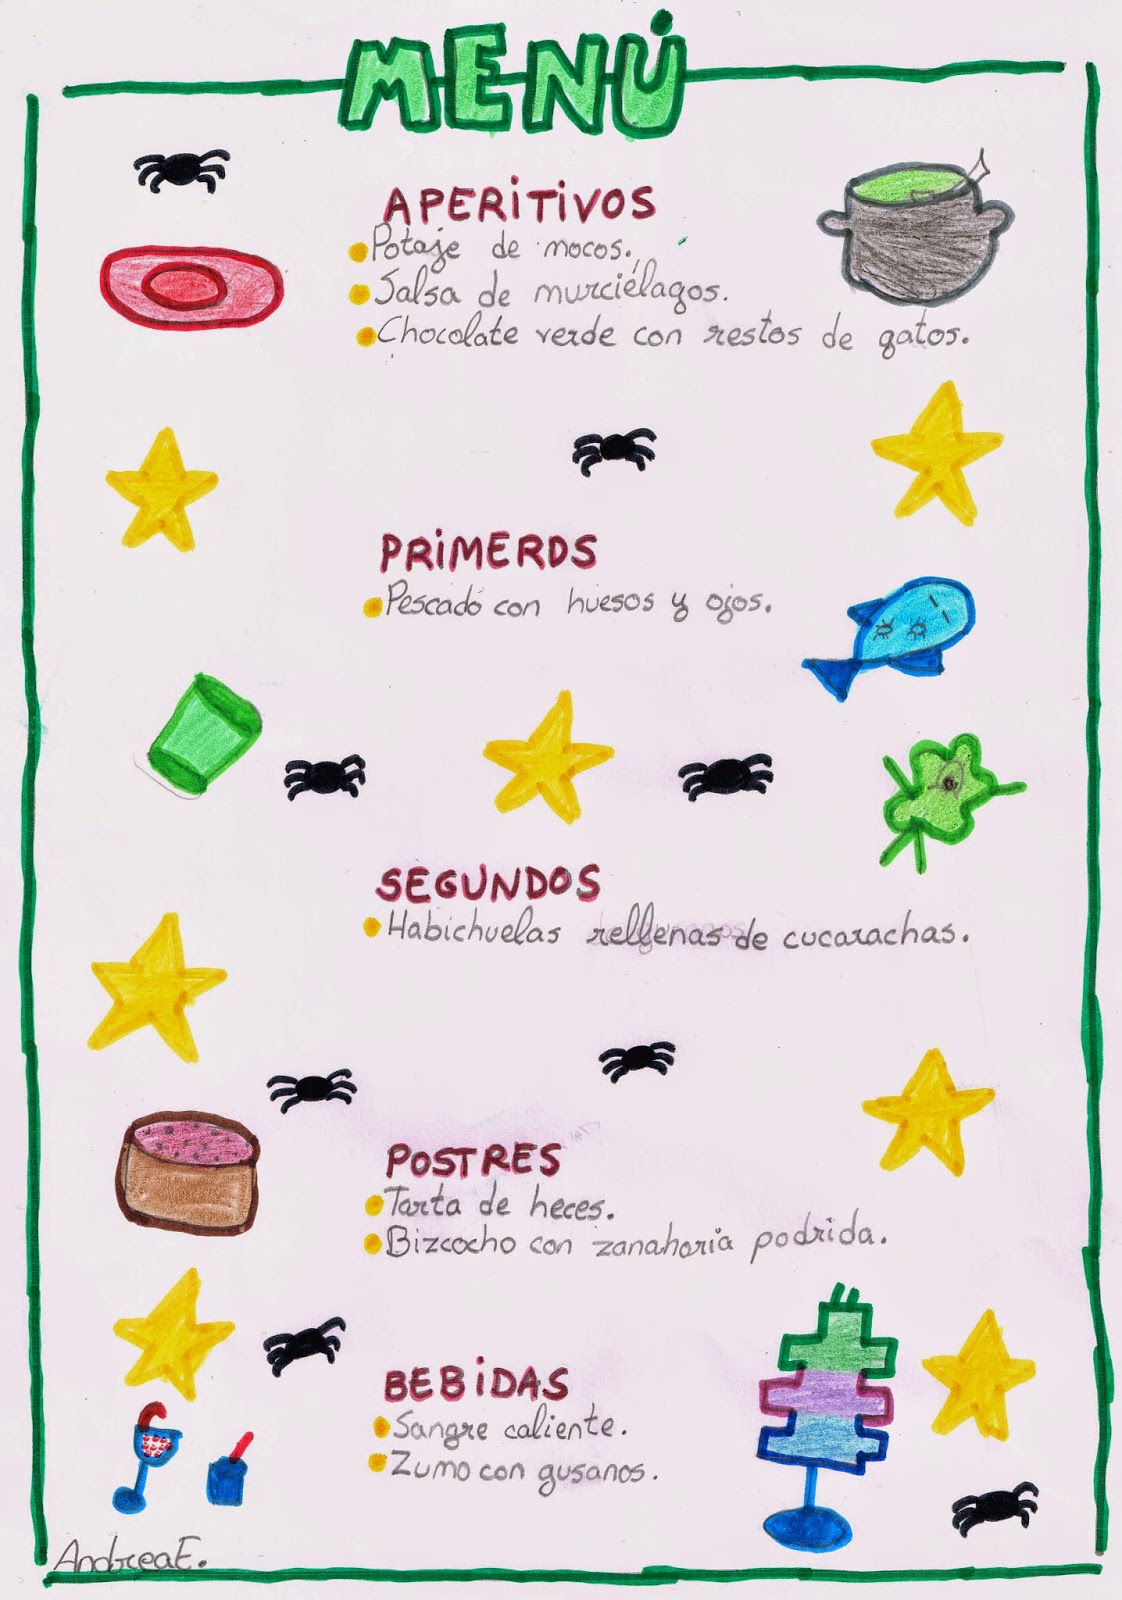 MENÚ
APERITIVOS
Potaje de mocos.
Salsa de murciélagos.
Chocolate verde con restos de gatos.
PRIMEROS
Pescado con huesos y ojos.
SEGUNDOS
Habichuelas rellenas de cucarachas.
POSTRES
Tarta de heces.
Bizcocho con zanahoria podrida.
BEBIDAS
Sangre caliente.
Zumo con gusanos.
Andrea E.